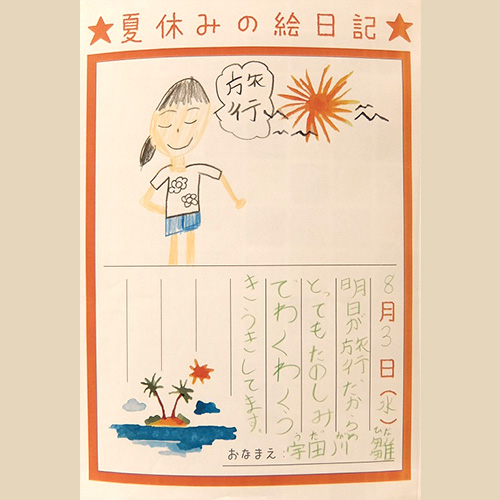 ★夏休みの絵日記★
旅行
8月3日(水)
明日が旅行だから
とってもたのしみ
でわくわくう
きうきしてます。
おなまえ:宇田川 雛
う だ がわ ひな